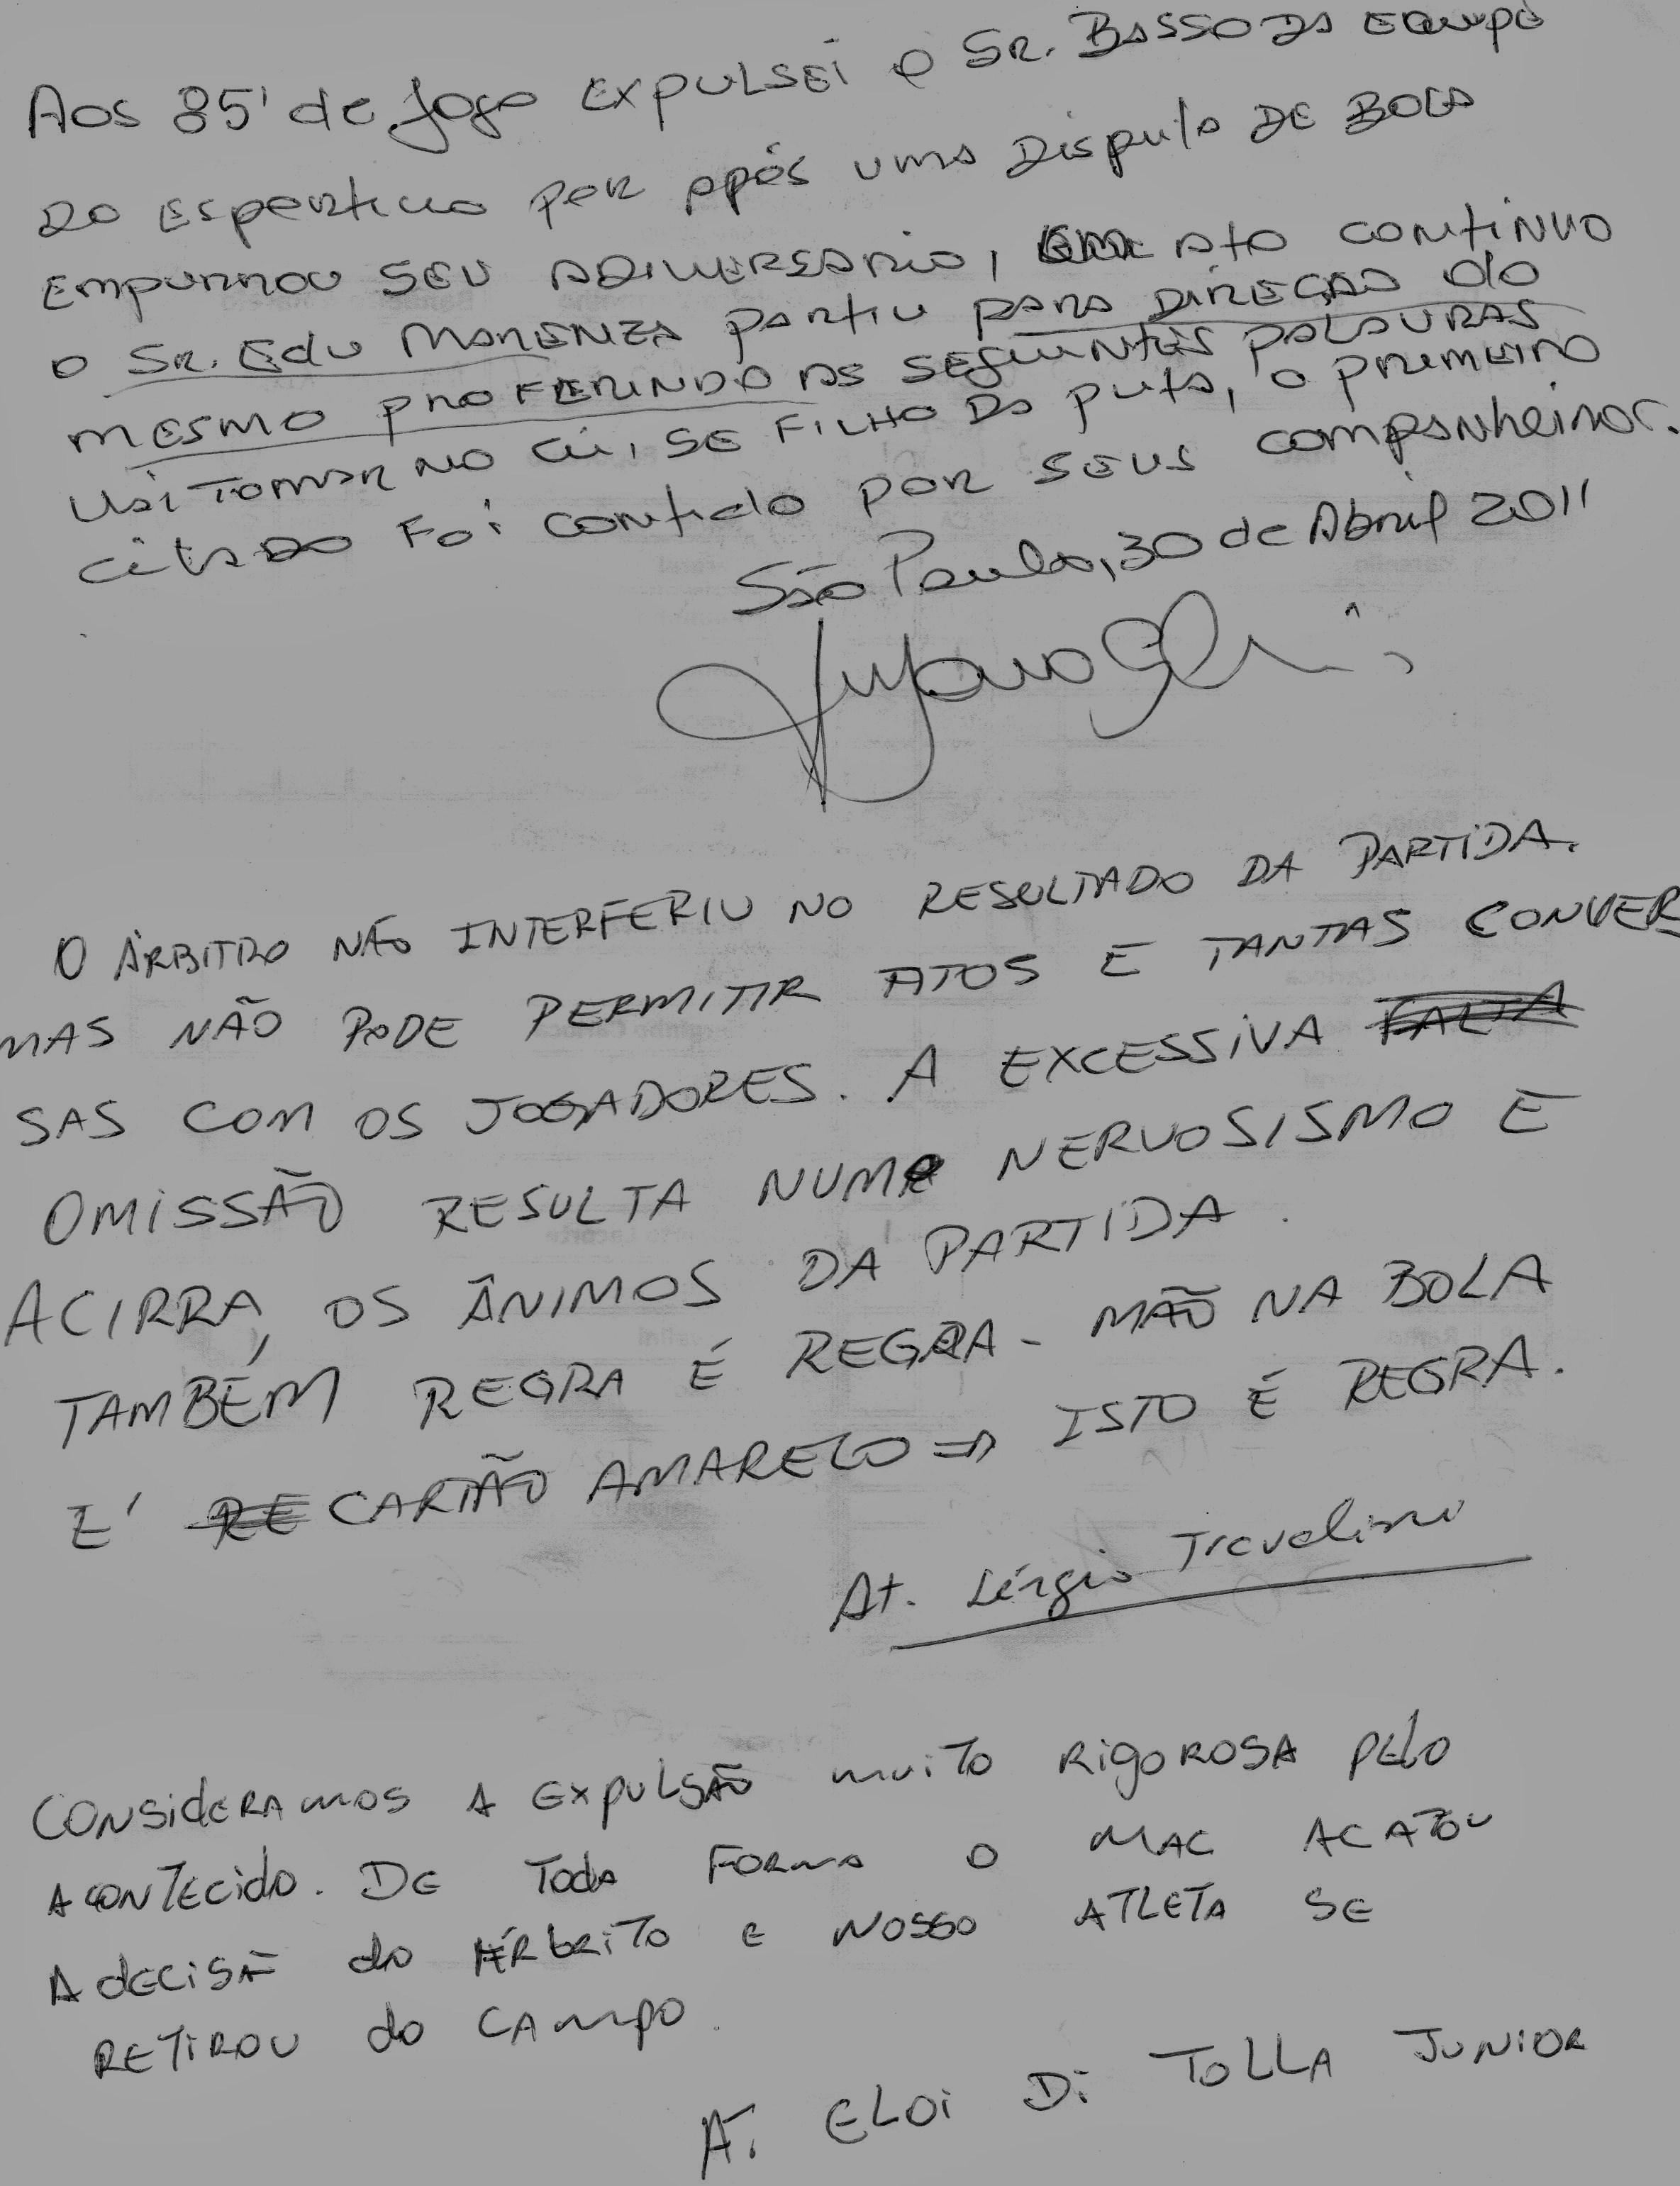 Aos 85' de jogo expulsei o SR. BASSO DA EQUIPE
DO ESPORTIVO por após uma DISPUTA DE BOLA
EMPURROU SEU ADIVERSARIO, EM ATO CONTINUO
O SR. EDU MARENZA partiu para DIREÇÃO do
MESMO PROFERINDO AS SEGUINTES PALAVRAS
VAI TOMAR NO CÚ, SE FILHO DA puta, o primeiro
citado FOI contido por SEUS companheiros.
São Paulo, 30 de Abril 2011
O ÁRBITRO NÃO INTERFERIU NO RESULTADO DA PARTIDA.
MAS NÃO PODE PERMITIR ATOS E TANTAS CONVER
SAS COM OS JOGADORES. A EXCESSIVA FALTA
OMISSÃO RESULTA NUM NERVOSISMO E
ACIRRA, OS ÂNIMOS DA PARTIDA.
TAMBÉM REGRA É REGRA - MÃO NA BOLA
E' RE CARTÃO AMARELO => ISTO É REGRA.
At. Sérgio Travalini
CONSIDERAMOS A EXPULSÃO MUITO RIGOROSA PELO
ACONTECIDO. DE TODA FORMA O MAC ACATOU
A DECISÃ do ÁRBRITO E NOSSO ATLETA SE
RETIROU do CAMPO.
A. ELOI Di TOLLA JUNIOR